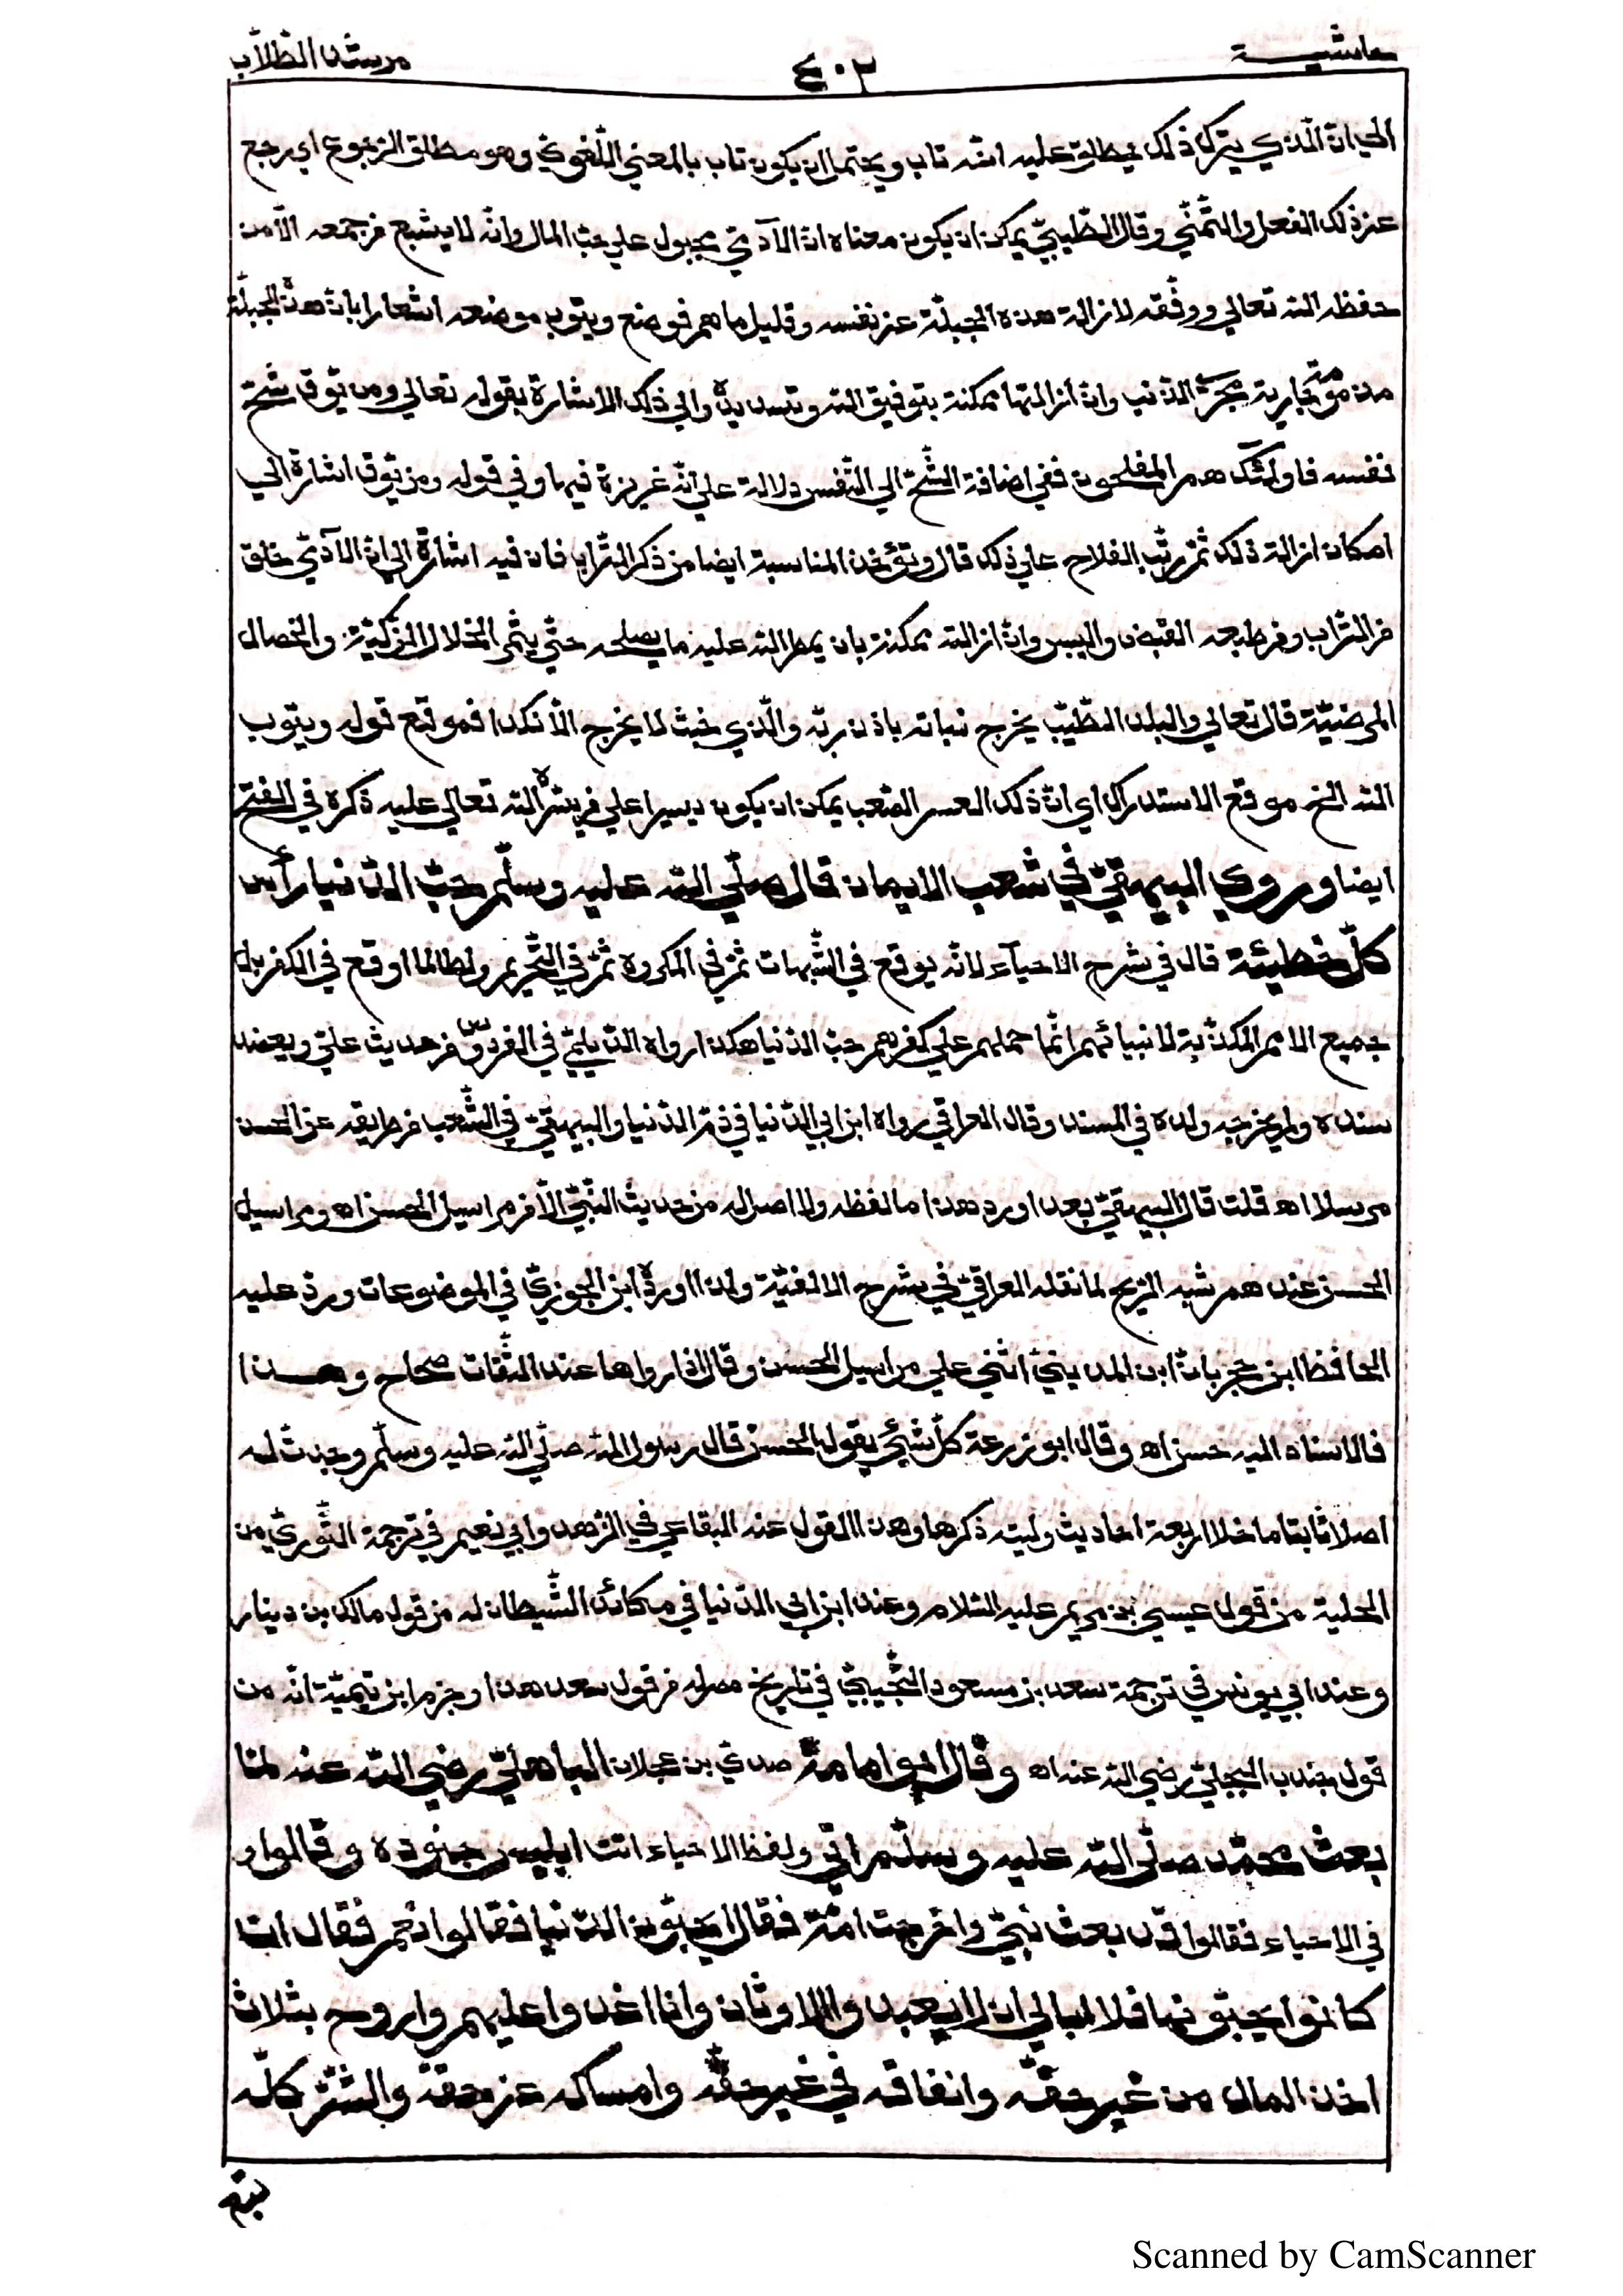 حاشيـــة ٤٠٢ مرشد الطّلاب
الخيانة الّذي يترك ذلك يطلق عليه انّه تاب ويحتمل ان يكون تاب بالمعني اللّغويّ وهو مطلق الرّجوع اي رجع
عن ذلك الفعل والتّمنّي وقال الطّيبيّ يمكن ان يكون معناه انّ الآدميّ مجبول علي حبّ المال وانّه لا يشبع من جمعه الاّ من
حفظه الله تعالي ووفّقه لازالة هذه الجبلّة عن نفسه وقليل ما هم فوضع ويتوب موضعه اشعارا بانّ هذه الجبلّة
مذمومة جارية مجري الذّنب وانّ ازالتها ممكنة بتوفيق الله وتسديده والي ذلك الاشارة بقوله تعالي ومن يّوق شحّ
نفسه فاولئك هم المفلحون ففي اضافة الشّحّ الي النّفس دلالة علي انّه غريزة فيها وفي قوله ومن يّوق اشارة الي
امكان ازالة ذلك ثمّ رتّب الفلاح علي ذلك قال وتؤخذ المناسبة ايضا من ذكر التّراب فان فيه اشارة الي انّ الآدميّ خلق
من التّراب ومن طبعه القبض واليبس وانّ ازالته ممكنة بان يمطر الله عليه ما يصلحه حتّي يثمر الخلال الزّكيّة والخصال
المرضيّة قال تعالي والبلد الطّيّب يخرج نباته باذن ربّه والّذي خبث لا يخرج الاّ نكدا فموقع قوله ويتوب
الله الخ موقع الاستدراك اي انّ ذلك العسر الصّعب يمكن ان يكون يسيرا علي من يسّره الله تعالي عليه ذكره في الفتح
ايضا وروي البيهقيّ في شعب الايمان قال صلّي الله عليه وسلّم حبّ الدّنيا رأس
كلّ خطيئة قال في شرح الاحيآء لانّه يوقع في الشّبهات ثمّ في المكروه ثمّ في التّحريم ولطالما اوقع في الكفر بل
جميع الامم المكذّبة لانبيائهم انّما حملهم علي كفرهم حبّ الدّنيا هكذا رواه الدّيلميّ في الفردوس من حديث عليّ وبيض
سنده ولم يخرّجه ولده في المسند وقال العراقي رواه ابن ابي الدّنيا في ذمّ الدّنيا والبيهقيّ في الشّعب من طريقه عن الحسن
مرسلا اه قلت قال البيهقيّ بعد اورد هذا ما لفظه ولا اصل له من حديث النّبيّ الاّ من مراسيل الحسن اه ومراسيل
الحسن عندهم شبه الرّيح لما نقله العراقيّ في شرح الالفيّة ولذا اورده ابن الجوزيّ في الموضوعات وردّ عليه
الحافظ ابن حجر بانّ ابن المدينيّ اثني علي مراسيل الحسن وقال اذا رواها عنه الثّقات صحاح وهـــذا
فالاسناد اليه حسن اه وقال ابو زرعة كلّ شيئ يقول الحسن قال رسول الله صلّي الله عليه وسلّم وجدتّ له
اصلا ثابتا ما خلا اربعة احاديث وليته ذكرها وهذا القول عند البقاعي في الزّهد وابي نعيم في ترجمة الثّوريّ من
الحلية من قول عيسي بن مريم عليه السّلام وعند ابن ابي الدّنيا في مكائد الشّيطان له من قول مالك بن دينار
وعند ابي يونس في ترجمة سعد بن مسعود التّجيبيّ في تاريخ مصر له من قول سعد هذا وجزم ابن تيميّة انّه من
قول جندب البجليّ رضي الله عنه اه وقال ابو امامة صدي بن عجلان الباهليّ رضي الله عنه لمّا
بعث محمّد صلّي الله عليه وسلّم اتي ولفظ الاحياء اتت ابليس جنوده وقالوا و
في الاحياء فقالوا قد بعث نبيّ واخرجت امّة فقال ايحبّون الدّنيا فقالوا نعم فقال ان
كانوا يحبّونها فلا ابالي ان لا يعبدوا الاوثان وانا اغدوا عليهم واروح بثلاث
اخذ المال من غير حقّه وانفاقه في غير حقّه وامساكه عن حقّه والشّرّ كلّه
Scanned by CamScanner